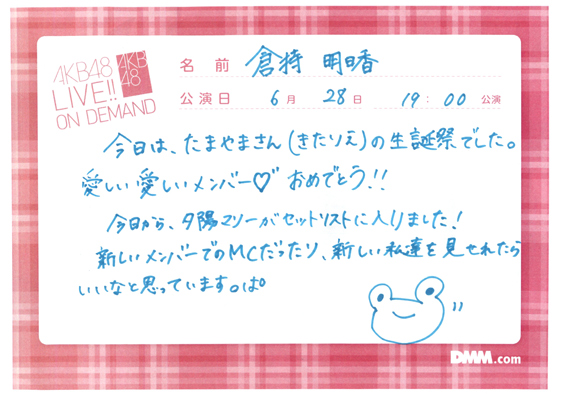 AKB48
LIVE!!
ON DEMAND
AKB
48
名前 倉持 明日香
公演日 6月 28日 19:00 公演
今日は、たまやまさん(きたりえ)の生誕祭でした。
愛しい愛しいメンバー♡ おめでとう!!
今日から、夕陽マリーがセットリストに入りました!
新しいメンバーでのMCだったり、新しい私達を見せれたら
いいなと思っています。ぱ。
DMM.com